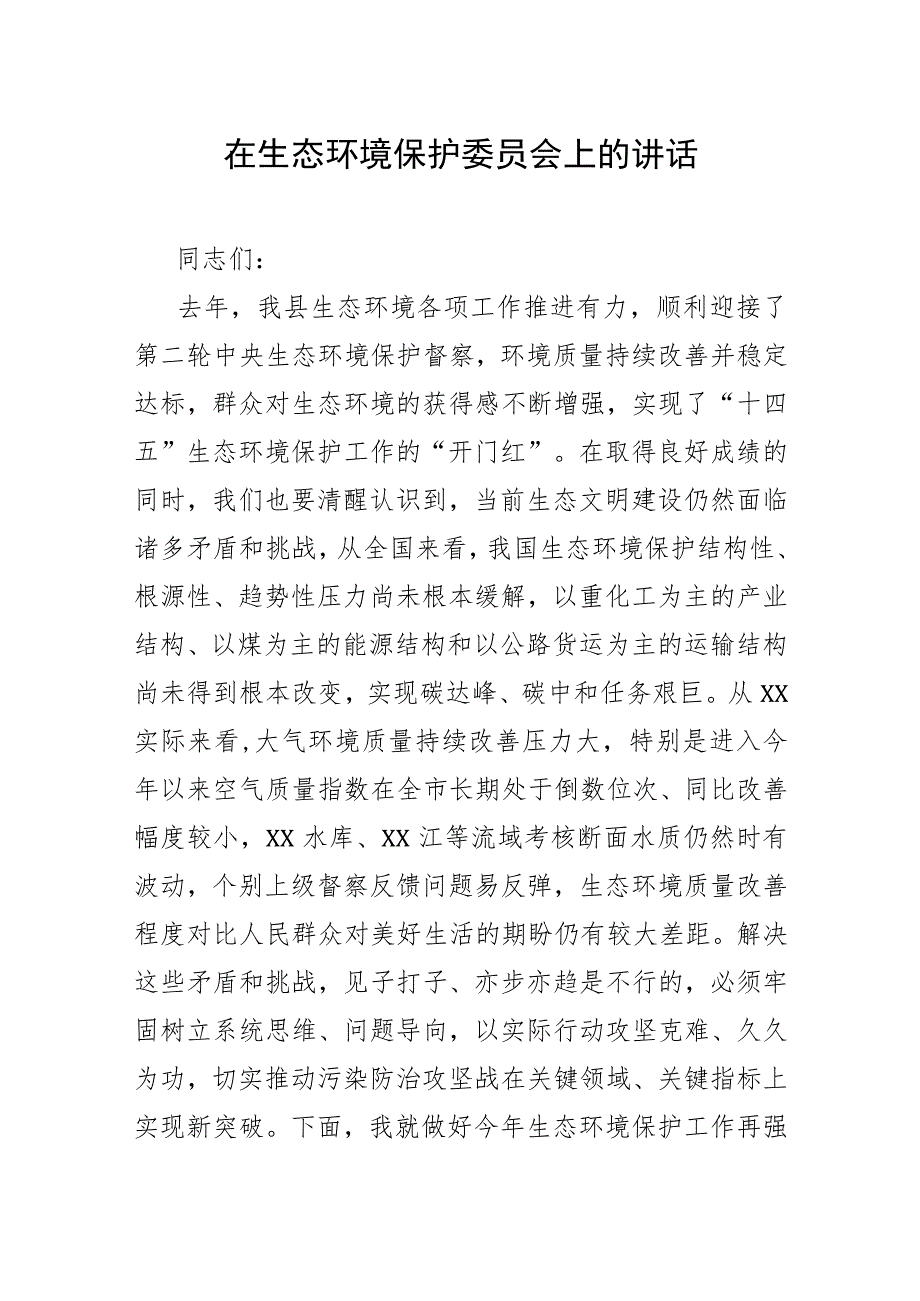 在生态环境保护委员会上的讲话
同志们：
去年，我县生态环境各项工作推进有力，顺利迎接了
第二轮中央生态环境保护督察，环境质量持续改善并稳定
达标，群众对生态环境的获得感不断增强，实现了“十四
五”生态环境保护工作的“开门红”。在取得良好成绩的
同时，我们也要清醒认识到，当前生态文明建设仍然面临
诸多矛盾和挑战，从全国来看，我国生态环境保护结构性、
根源性、趋势性压力尚未根本缓解，以重化工为主的产业
结构、以煤为主的能源结构和以公路货运为主的运输结构
尚未得到根本改变，实现碳达峰、碳中和任务艰巨。从 XX
实际来看,大气环境质量持续改善压力大，特别是进入今
年以来空气质量指数在全市长期处于倒数位次、同比改善
幅度较小，XX 水库、XX 江等流域考核断面水质仍然时有
波动，个别上级督察反馈问题易反弹，生态环境质量改善
程度对比人民群众对美好生活的期盼仍有较大差距。解决
这些矛盾和挑战，见子打子、亦步亦趋是不行的，必须牢
固树立系统思维、问题导向，以实际行动攻坚克难、久久
为功，切实推动污染防治攻坚战在关键领域、关键指标上
实现新突破。下面，我就做好今年生态环境保护工作再强